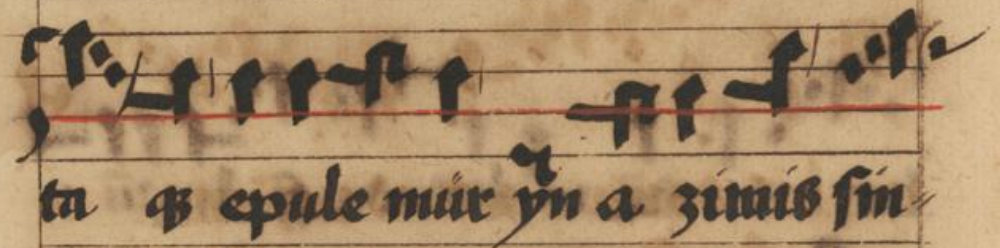 ta qꝫ epule mür yn a zimis sin⸗